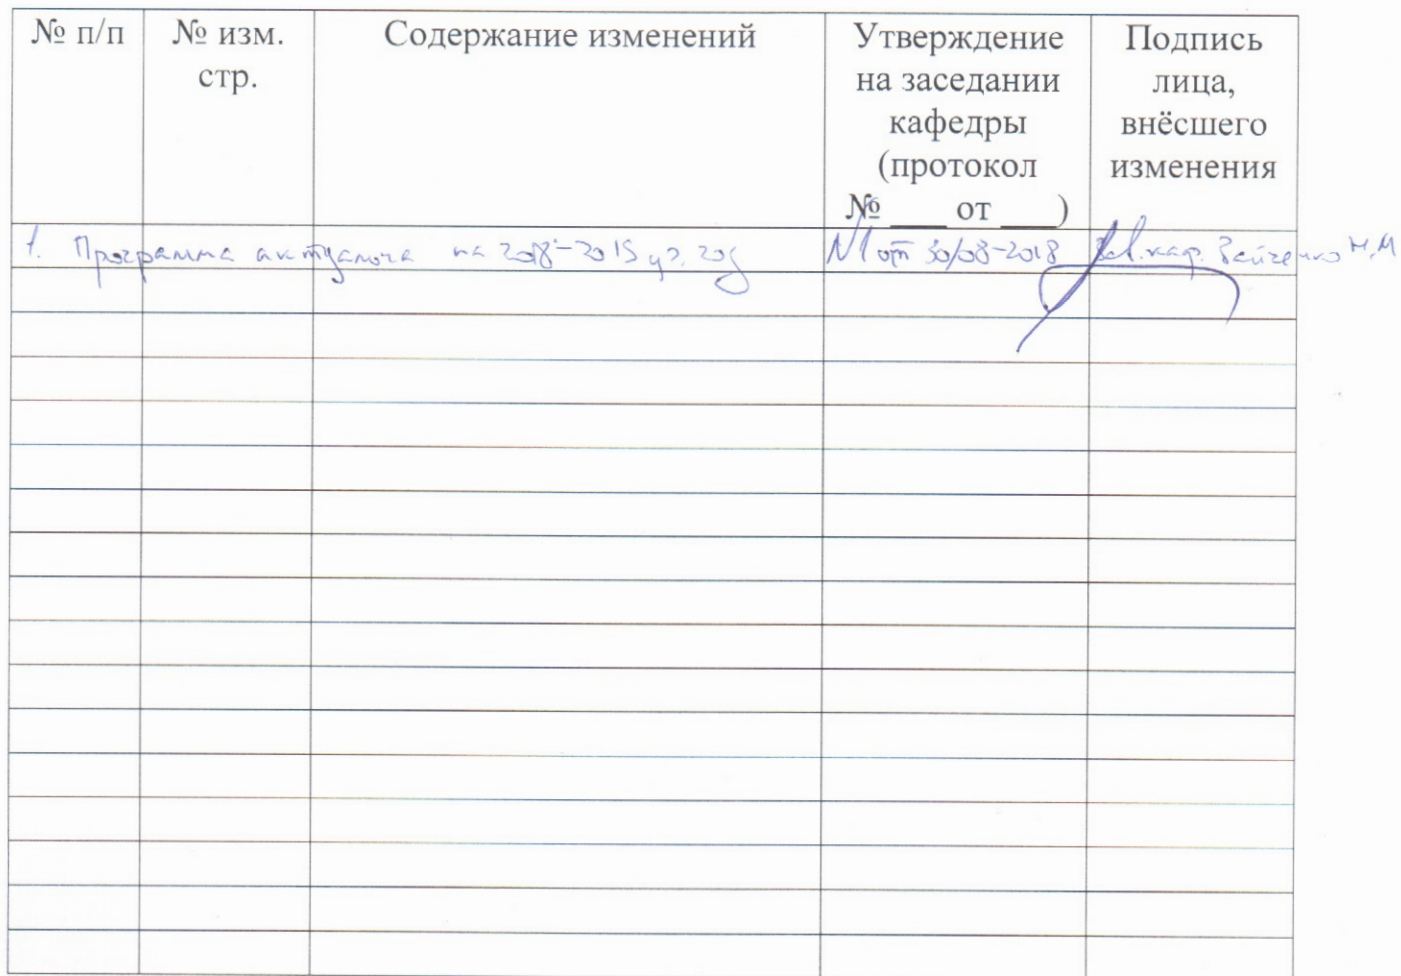 № п/п
№ изм.
стр.
Содержание изменений
Утверждение
на заседании
кафедры
(протокол
№ ____ от ____)
Подпись
лица,
внёсшего
изменения
1. Программа на 2018-2019 уч. год
№1 от 30/08-2018
Зав. каф. Зайченко Н.М